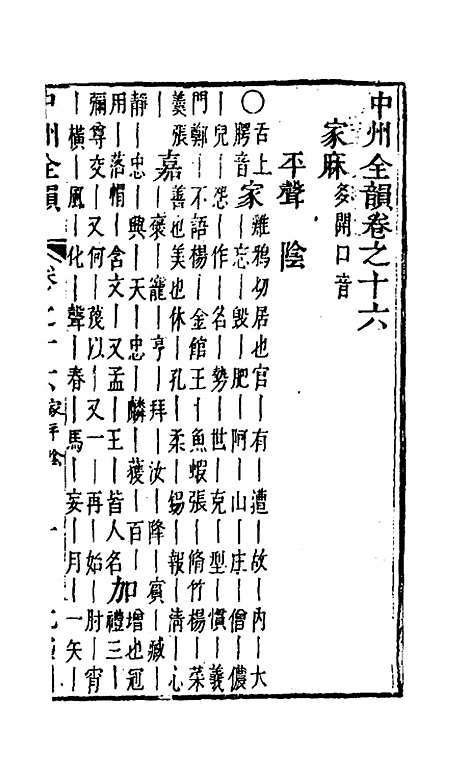 中州全韻卷之十六
家麻 多開口音
平聲 陰
〇舌上腭音
家 雞鴉切居也官｜有｜遭｜故｜內｜大
｜忘｜毀｜肥｜阿｜山｜庄｜僧｜儂
｜兒｜恐｜作｜名｜勢｜世｜克｜型｜慣｜義
門｜鄭｜不語楊｜金館王｜魚蝦張｜脩竹楊｜菜
羹張｜
嘉 善也美也休｜孔｜柔｜錫｜報｜清｜心
｜褒｜寵｜亨｜拜｜汝｜降｜賓｜臧｜
靜｜忠｜興｜天｜忠｜麟｜獲｜百｜
加 增也冠
用｜落帽｜含文｜又孟｜王｜皆人名
禮三｜
彌尊交｜又何｜茂以｜又一｜再｜始｜肘｜宵
｜橫｜風｜化｜聲｜春｜馬｜妄｜月｜一矢｜
中州全韻 卷之十六 家平陰 一